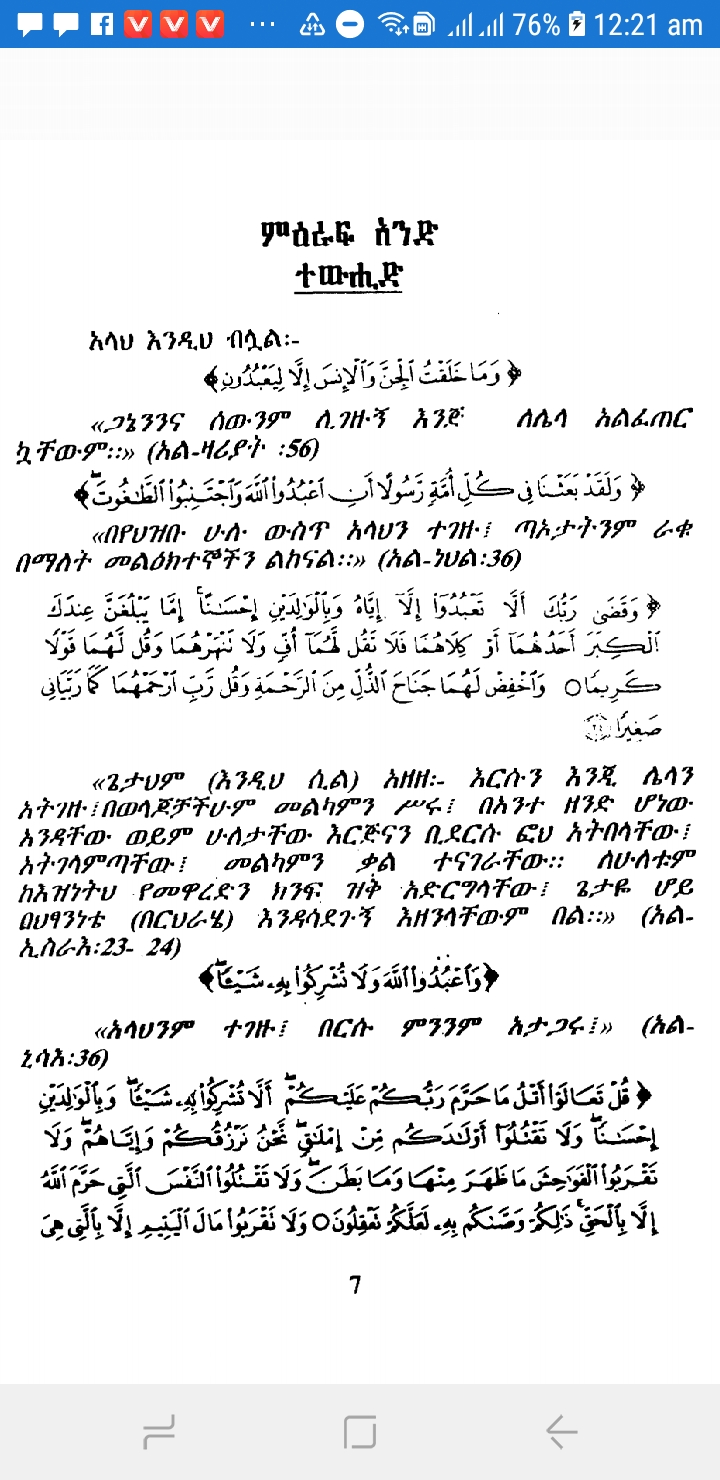 76% 12:21 am
ምዕራፍ አንድ
ተውሒድ
አላህ እንዲህ ብሏል፡-
﴿ وَمَا خَلَقْتُ ٱلْجِنَّ وَٱلْإِنسَ إِلَّا لِيَعْبُدُونِ ﴾
«ጋኔንንና ሰውንም ሊገዙኝ እንጅ ለሌላ አልፈጠር
ኳቸውም፡፡» (አል-ዛሪያት :56)
﴿ وَلَقَدْ بَعَثْنَا فِى كُلِّ أُمَّةٍ رَّسُولًا أَنِ ٱعْبُدُوا۟ ٱللَّهَ وَٱجْتَنِبُوا۟ ٱلطَّٰغُوتَ ۖ ﴾
«በየህዝቡ ሁሉ ውስጥ አላህን ተገዙ፤ ጣኦታትንም ራቁ
በማለት መልዕክተኞችን ልከናል፡፡» (አል-ነህል:36)
﴿ وَقَضَىٰ رَبُّكَ أَلَّا تَعْبُدُوٓا۟ إِلَّآ إِيَّاهُ وَبِٱلْوَٰلِدَيْنِ إِحْسَٰنًا ۚ إِمَّا يَبْلُغَنَّ عِندَكَ
ٱلْكِبَرَ أَحَدُهُمَآ أَوْ كِلَاهُمَا فَلَا تَقُل لَّهُمَآ أُفٍّ وَلَا تَنْهَرْهُمَا وَقُل لَّهُمَا قَوْلًا
كَرِيمًا ○ وَٱخْفِضْ لَهُمَا جَنَاحَ ٱلذُّلِّ مِنَ ٱلرَّحْمَةِ وَقُل رَّبِّ ٱرْحَمْهُمَا كَمَا رَبَّيَانِى
صَغِيرًا ٢٤
«ጌታህም (እንዲህ ሲል) አዘዘ፡- እርሱን እንጂ ሌላን
አትገዙ፤በወላጆቻችሁም መልካምን ሥሩ፤ በአንተ ዘንድ ሆነው
አንዳቸው ወይም ሁለታቸው እርጅናን ቢደርሱ ፎህ አትበላቸው፤
አትገላምጣቸው፤ መልካምን ቃል ተናገራቸው፡፡ ለሁለቱም
ከእዝነትህ የመዋረድን ክንፍ ዝቅ አድርግላቸው፤ ጌታዬ ሆይ
በህፃንነቴ (በርህራሄ) እንዳሳደጉኝ እዘንላቸውም በል፡፡» (አል-
ኢስራእ:23- 24)
﴿وَٱعْبُدُوا۟ ٱللَّهَ وَلَا تُشْرِكُوا۟ بِهِۦ شَيْـًٔا ۖ﴾
«አላህንም ተገዙ፤ በርሱ ምንንም አታጋሩ፤» (አል-
ኒሳእ:36)
﴿ قُلْ تَعَالَوْا۟ أَتْلُ مَا حَرَّمَ رَبُّكُمْ عَلَيْكُمْ ۖ أَلَّا تُشْرِكُوا۟ بِهِۦ شَيْـًٔا ۖ وَبِٱلْوَٰلِدَيْنِ
إِحْسَٰنًا ۖ وَلَا تَقْتُلُوٓا۟ أَوْلَٰدَكُم مِّنْ إِمْلَٰقٍ ۖ نَّحْنُ نَرْزُقُكُمْ وَإِيَّاهُمْ ۖ وَلَا
تَقْرَبُوا۟ ٱلْفَوَٰحِشَ مَا ظَهَرَ مِنْهَا وَمَا بَطَنَ ۖ وَلَا تَقْتُلُوا۟ ٱلنَّفْسَ ٱلَّتِى حَرَّمَ ٱللَّهُ
إِلَّا بِٱلْحَقِّ ۚ ذَٰلِكُمْ وَصَّىٰكُم بِهِۦ لَعَلَّكُمْ تَعْقِلُونَ ○ وَلَا تَقْرَبُوا۟ مَالَ ٱلْيَتِيمِ إِلَّا بِٱلَّتِى هِىَ
7